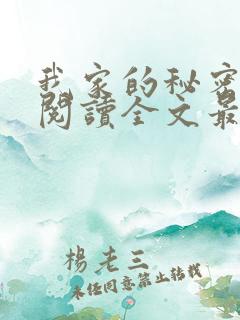 我家的秘密
閱讀全文最
楊老三
未任同意禁止轉載